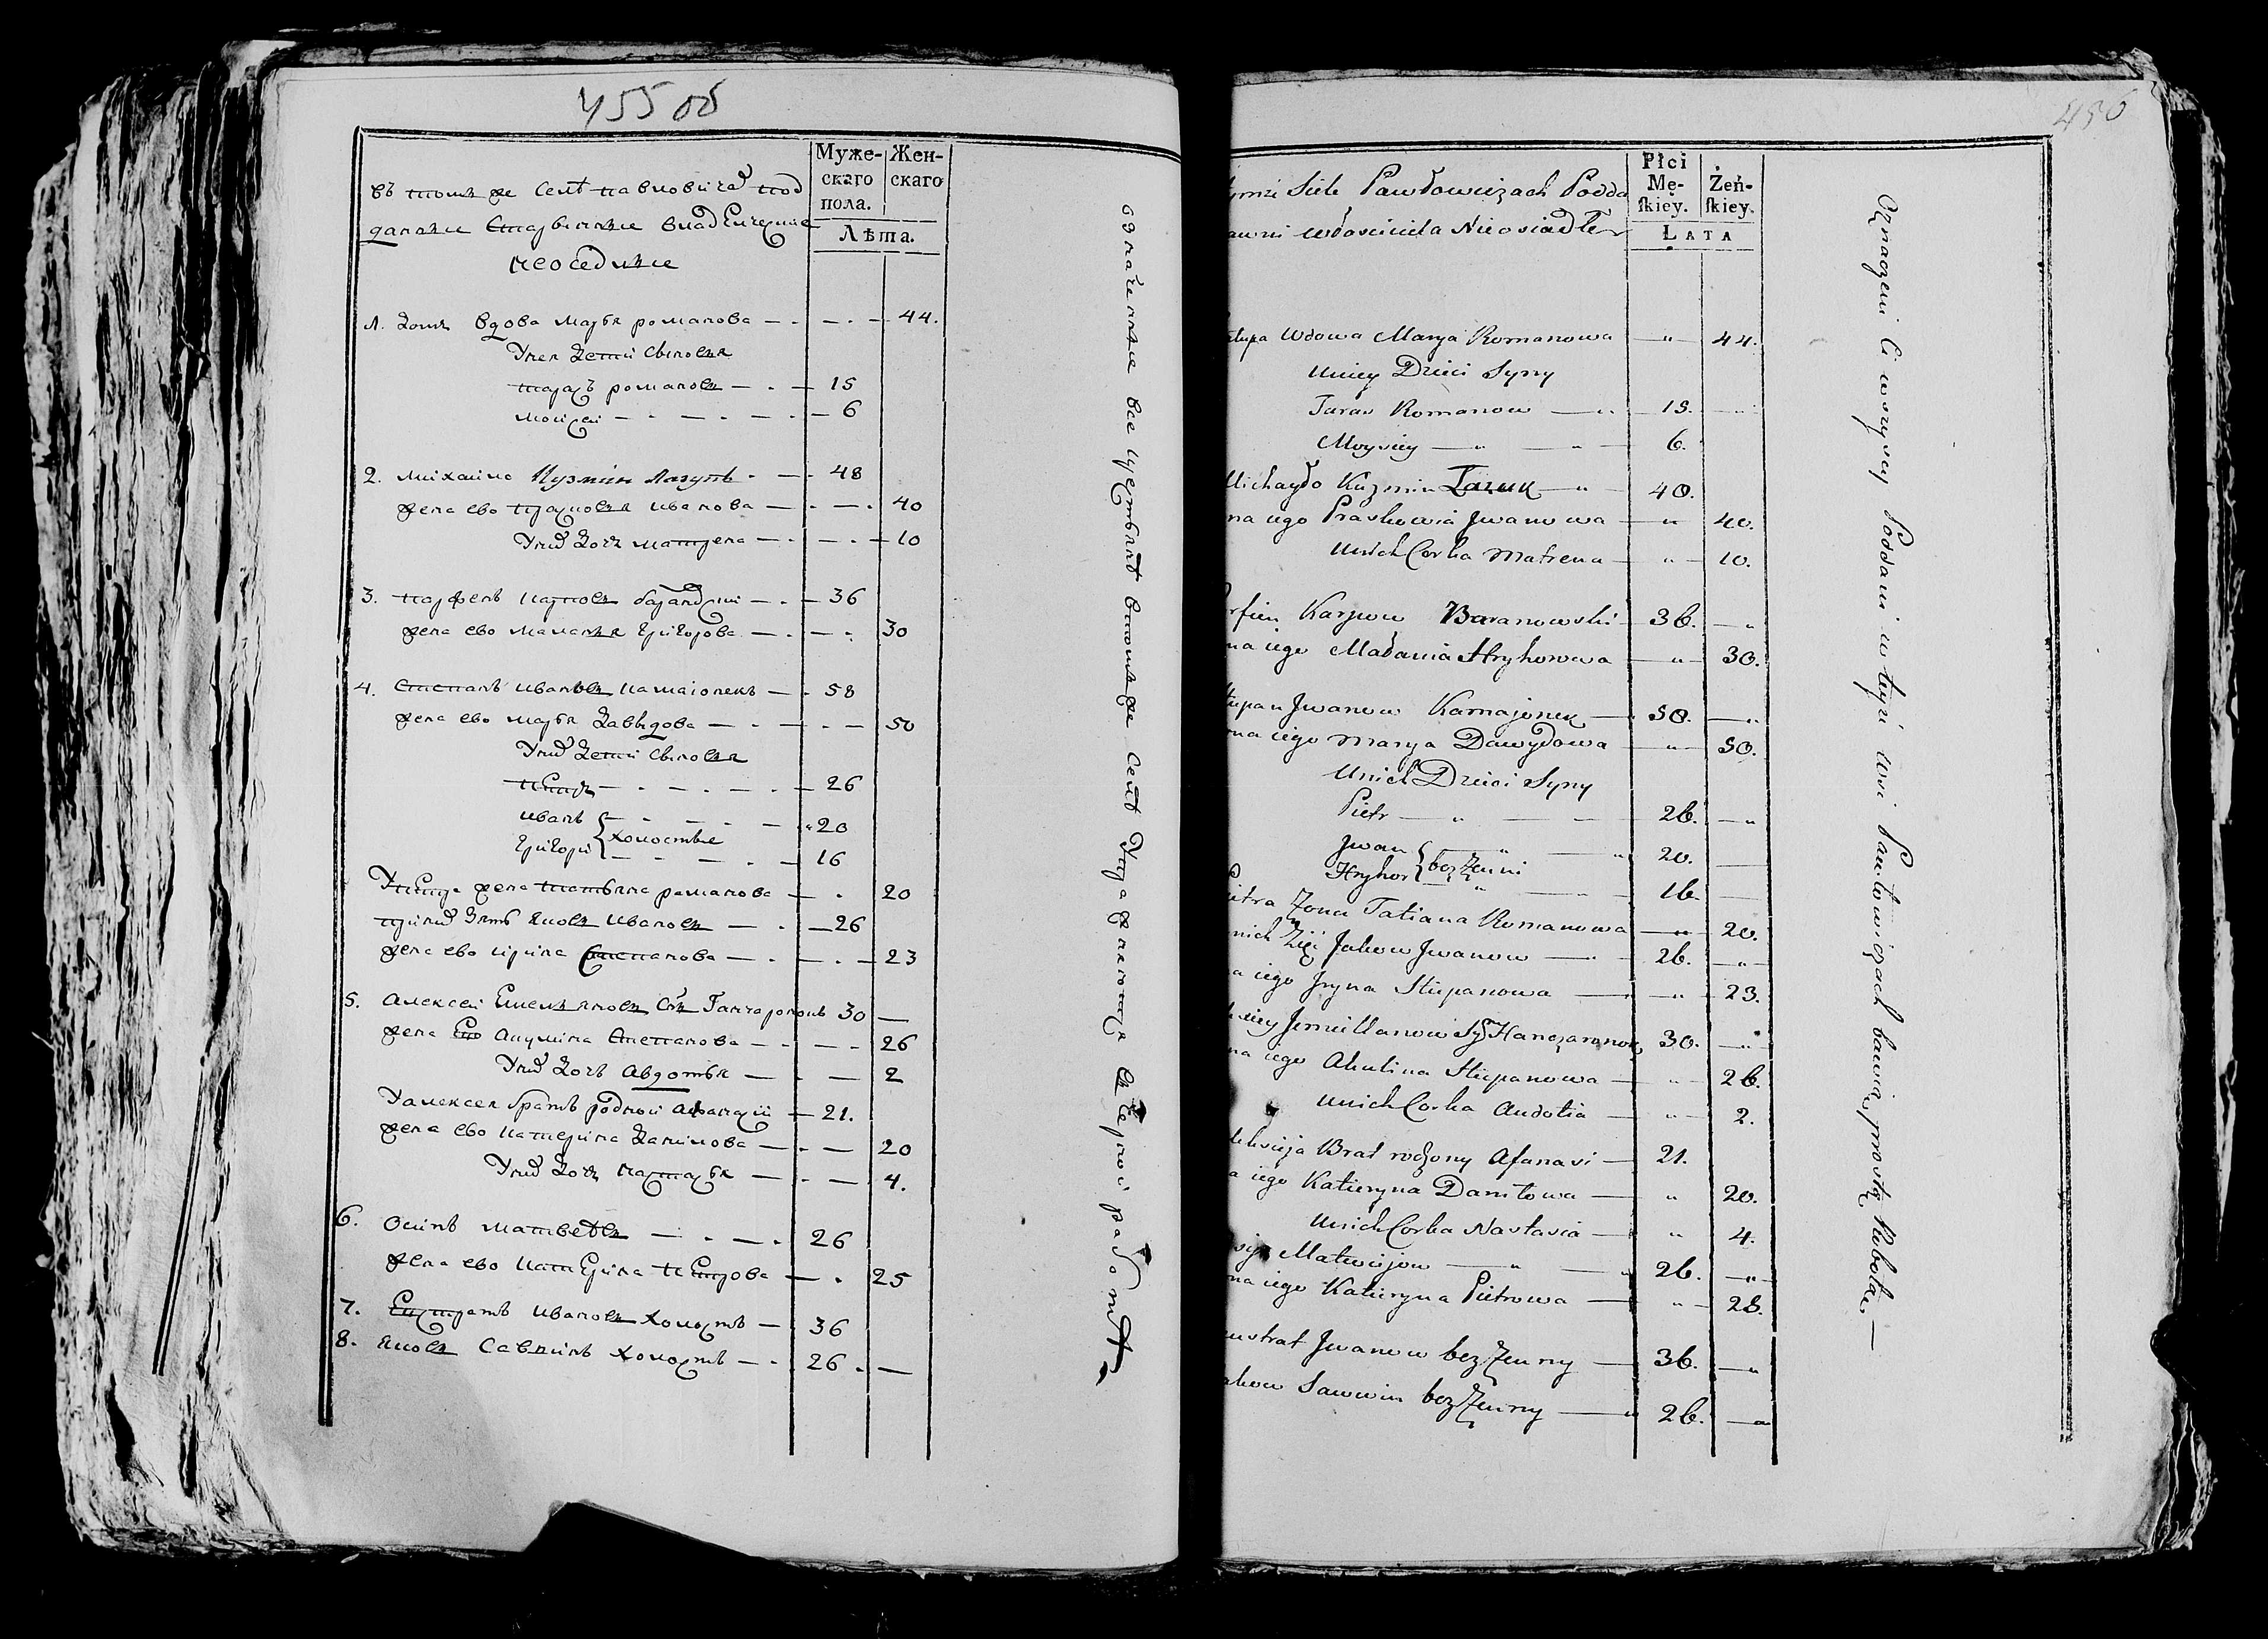 455 об
Муже-
скаго
пола.
Жен-
скаго
Лѣта.
въ томъ же селѣ павловичах под
даные старынные владелческие
неоседлые
1. домъ вдова марья романова — 44.
У нея детей сыновья
тарасъ романовъ — 15
моисей — 6
2. михайло кузминъ лазукъ — 48
жена ево прасковья иванова — 40
У них дочь матрена — 10
3. парфенъ карповъ барановский — 36
жена ево маланья григорова — 30
4. степанъ ивановъ камаионекъ — 58
жена ево марья давыдова — 50
У них детей сыновья
петръ — 26
иванъ — 20
холостые
григори — 16
У петра жена татьяна романова — 20
при них зять яковъ ивановъ — 26
жена ево ирина степанова — 23
5. алексей емельяновъ сынъ Ганчаронокъ 30 —
жена его акулина степанова — 26
У них дочь авдотья — 2
У алексея братъ родной афанасий — 21.
жена ево катерина данилова — 20
У них дочь настасья — 4.
6. осипъ матвеевъ — 26
жена ево катерина петрова — 25
7. евстратъ ивановъ холостъ — 36
8. яковъ саввинъ холостъ — 26. —
означенные все крестьяне в томъ же селѣ упражняются в черной работе
456
Płci
Mę-
skiey.
Żeń-
skiey.
LATA
tymże Siele Pawłowiczach Podda
awni właściciela Nieosiadłe
Chłupa Wdowa Marya Romanowa — 44.
U niey Dzieci Syny
Taras Romanow — 15.
Moysiey — 6.
Michayło Kuzmin Łazuk — 48.
na iego Praskowia Jwanowa — 40.
U nich Corka Matrena — 10.
rfien Karpow Baranowski — 36.
na iego Małania Hryhorowa — 30.
tiepan Jwanow Kamajonek — 58.
na iego Marya Dawydowa — 50.
U nich Dzieci Syny
Pietr — 26.
Jwan — 20.
bez Żenni
Hryhor — 16.
ietra Żona Tatiana Romanowa — 20.
nich Zięć Jakow Jwanow — 26.
a iego Jryna Stiepanowa — 23.
leksiey Jemielianow Sy Hanczaronok 30.
na iego Akulina Stiepanowa — 26.
U nich Corka Audotia — 2.
leksieja Brat rodzony Afanasi — 21.
a iego Katieryna Daniłowa — 20.
U nich Corka Nastasia — 4.
sip Matwiejow — 26.
na iego Katieryna Pietrowa — 25.
wstrat Jwanow bez Żenny — 36.
akow Sawwin bez Żenny — 26.
Oznaczeni Ci wszyscy Poddani w teyże wsi Pawłowiczach bawią prostą Robotą. —